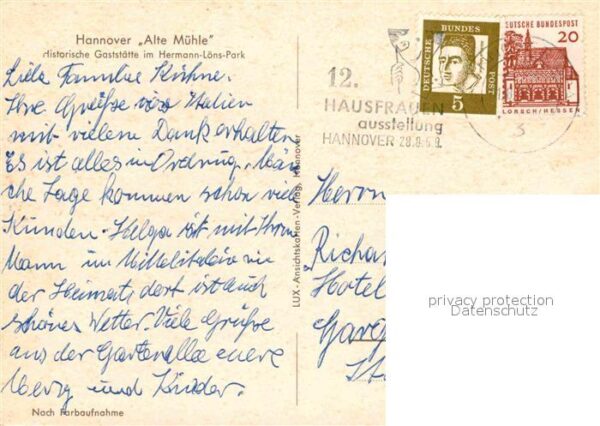 Hannover „Alte Mühle"
Historische Gaststätte im Hermann-Löns-Park
Liebe Familie Kühne.
Ihre Grüße Italien
mit vielem Dank erhalten
Es ist alles in Ordnung. Man
che Tage kommen schon viele
Kunden. Helga ist mit Ihrem
Mann im Mittelitalien
der Heimat, dort ist auch
schönes Wetter. Viele Grüße
aus der Gartenallee euere
und Kinder.
Nach Farbaufnahme
LUX-Ansichtskarten-Verlag, Hannover
12.
HAUSFRAUEN
ausstellung
HANNOVER 28.9.
DEUTSCHE BUNDES POST
5
DEUTSCHE BUNDESPOST
20
LORSCH/HESSEN
Herrn
Richa
Hotel
Garg
privacy protection
Datenschutz